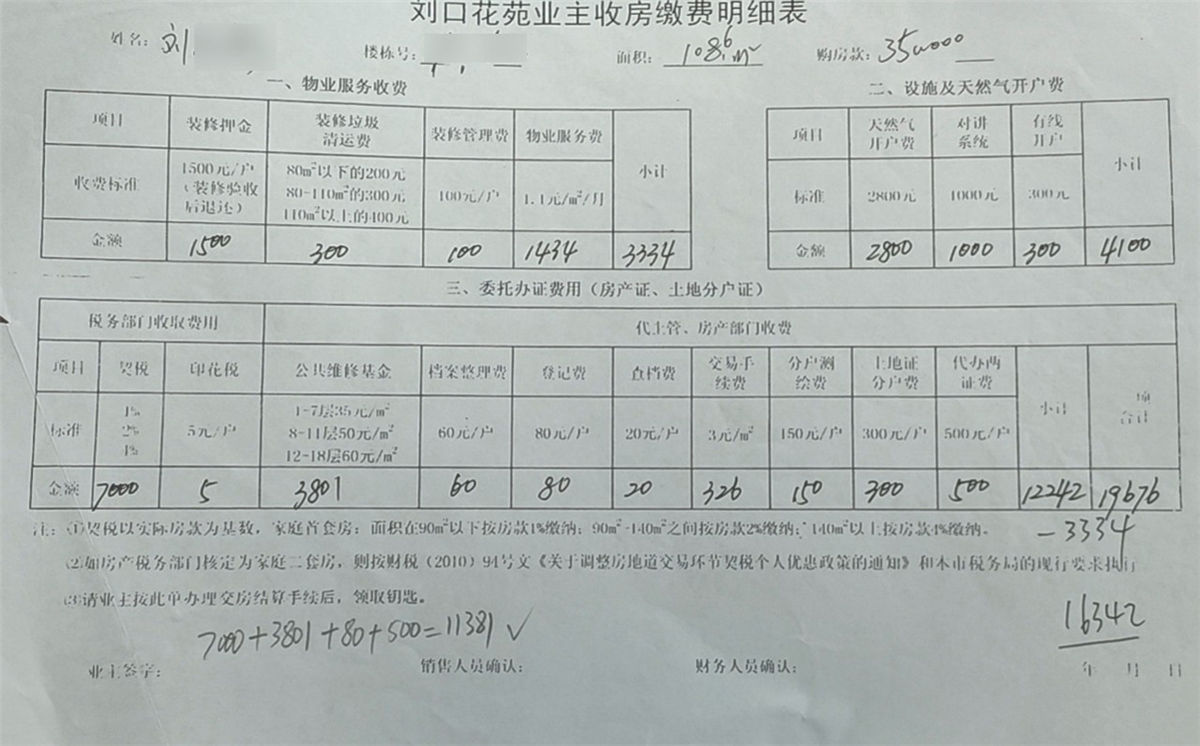 刘口花苑业主收房缴费明细表
姓名: 刘 楼栋号: 面积: 108.6m² 购房款: 350000
一、物业服务收费
项目 装修押金 装修垃圾清运费 装修管理费 物业服务费 小计
收费标准 1500元/户(装修验收后退还) 80m²以下的200元 80-110m²的300元 110m²以上的400元 100元/户 1.1元/m²/月
金额 1500 300 100 1434 3334
二、设施及天然气开户费
项目 天然气开户费 对讲系统 有线开户 小计
标准 2800元 1000元 300元
金额 2800 1000 300 4100
三、委托办证费用(房产证、土地分户证)
税务部门收取费用 代土管、房产部门收费
项目 契税 印花税 公共维修基金 档案整理费 登记费 查档费 交易手续费 分户测绘费 土地证分户费 代办两证费 小计 项合计
标准 1% 2% 4% 5元/户 1-7层35元/m² 8-11层50元/m² 12-18层60元/m² 60元/户 80元/户 20元/户 3元/m² 150元/户 300元/户 500元/户
金额 7000 5 3801 60 80 20 326 150 300 500 12242 19676
注: (1)契税以实际房款为基数,家庭首套房:面积在90m²以下按房款1%缴纳; 90m²-140m²之间按房款2%缴纳; 140m²以上按房款4%缴纳。
-3334
(2)如房产税务部门核定为家庭二套房,则按财税(2010)94号文《关于调整房地道交易环节契税个人优惠政策的通知》和本市税务局的现行要求执行
(3)请业主按此单办理交房结算手续后,领取钥匙。
16342
7000+3801+80+500=11381 ✓
业主签字: 销售人员确认: 财务人员确认: 年 月 日